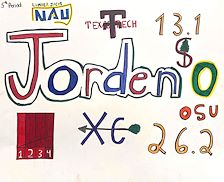 5th Period
LUMBERJACKS
NAU
TEXAS TECH
13.1
$
Jorden
O
OSU
1 2 3 4
XC
26.2